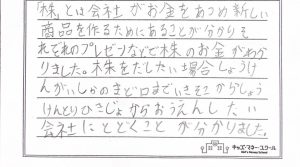 「株」とは会社がお金をあつめ新しい
商品を作るためにあることが分かりそ
れぞれのプレゼンなどで株のお金がわか
りました。株をだしたい場合しょうけ
んがいしゃのまど口までいきそこからしょう
けんとりひきじょからおうえんしたい
会社にとどくことが分かりました。
キッズ・マネー・スクール
Kid's Money School